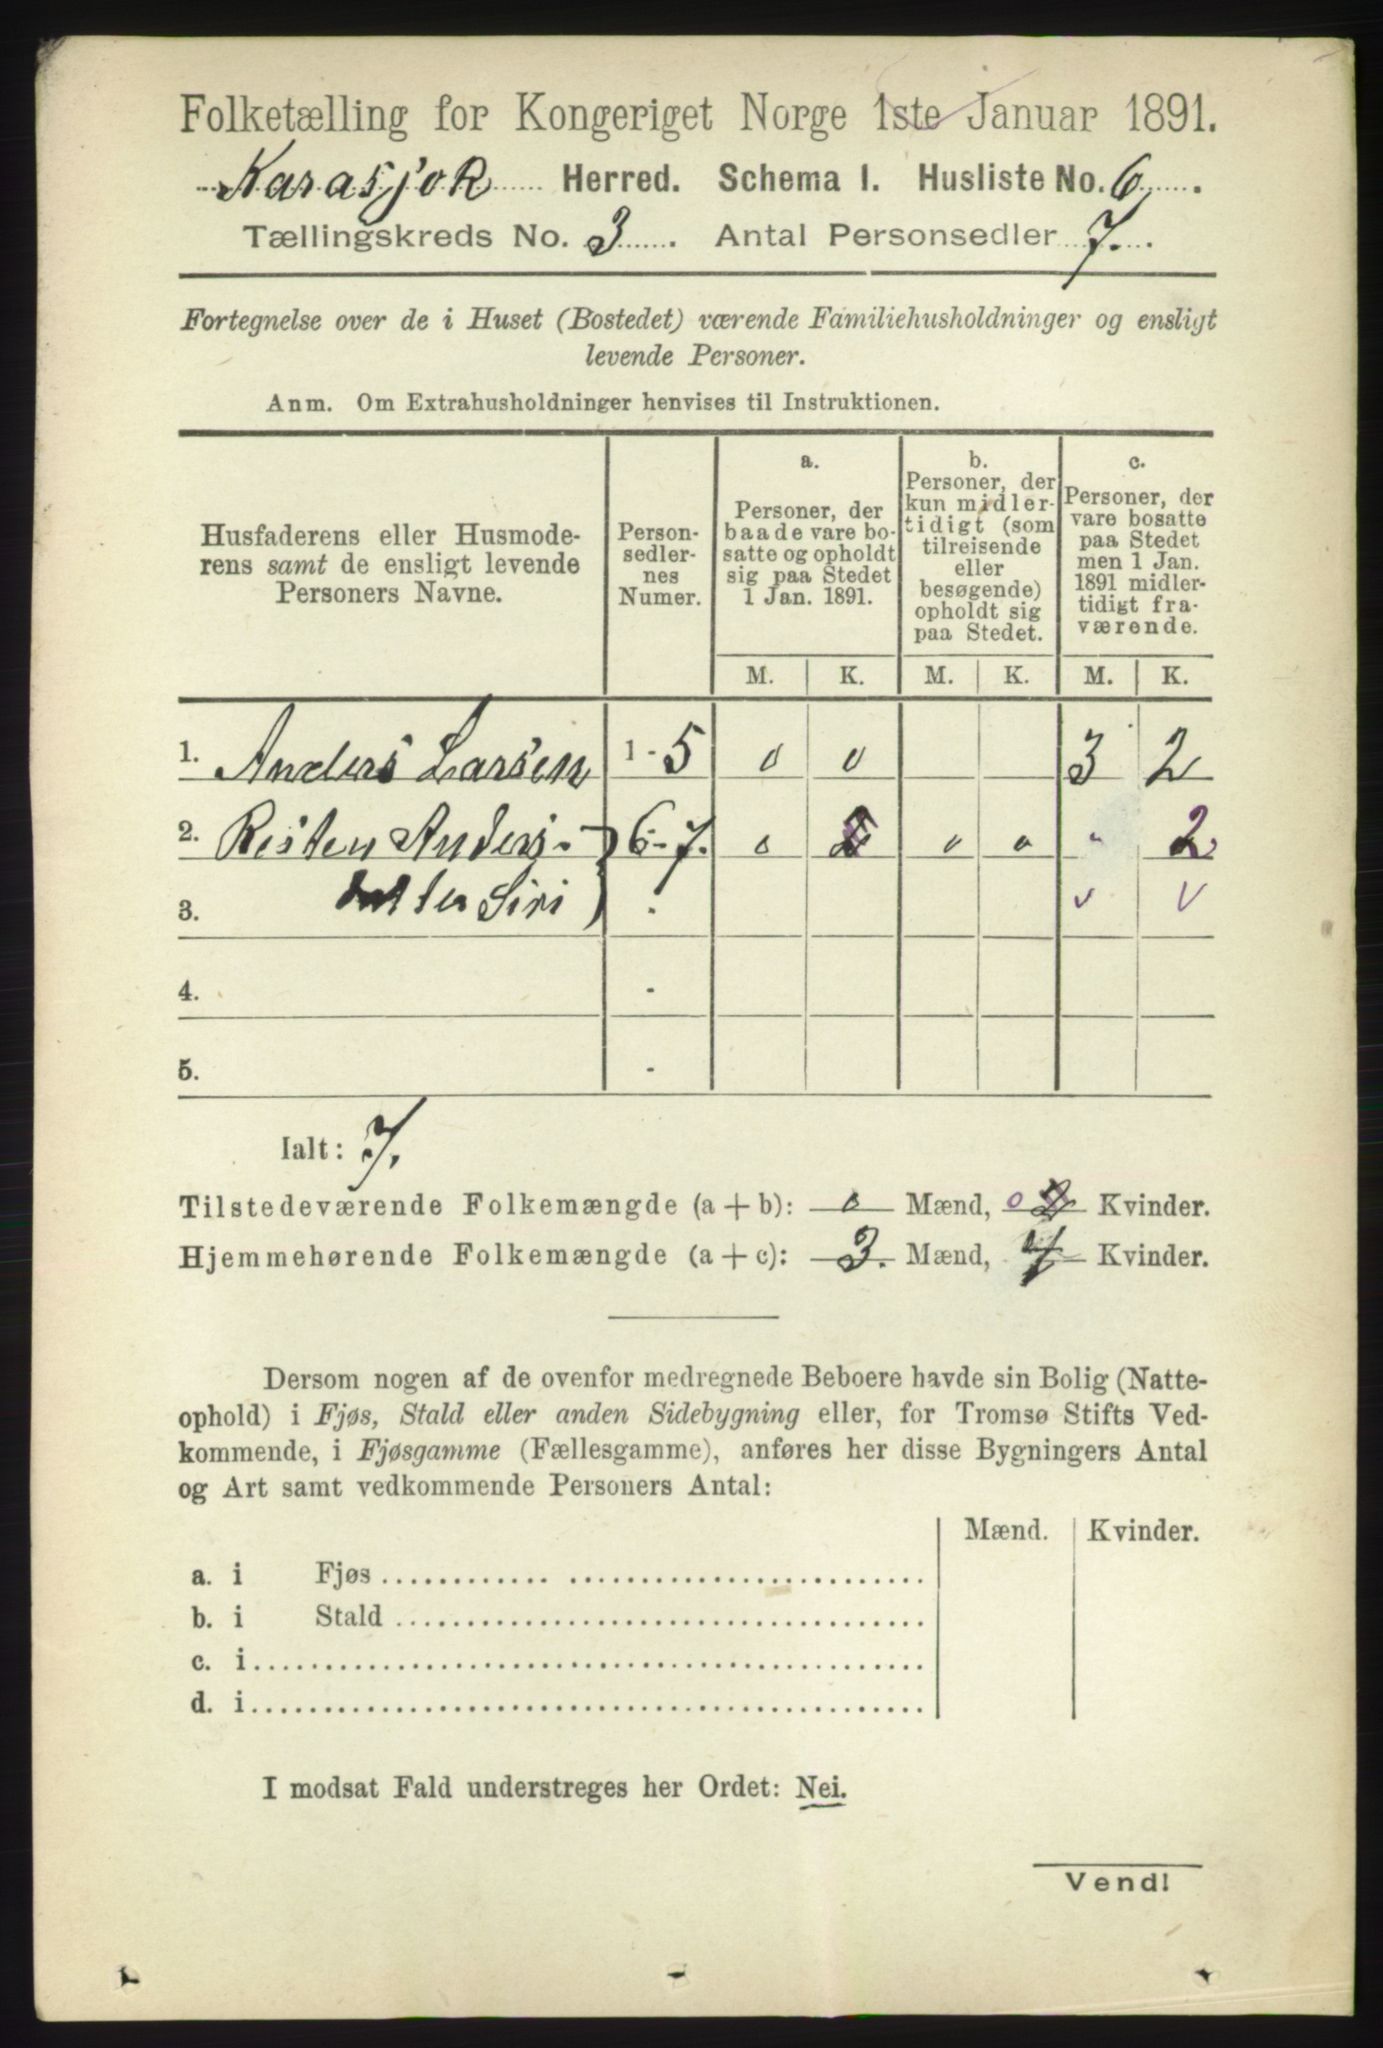 Folketælling for Kongeriget Norge 1ste Januar 1891.
Karasjok Herred. Schema I. Husliste No. 6.
Tællingskreds No. 3. Antal Personsedler 7.
Fortegnelse over de i Huset (Bostedet) værende Familiehusholdninger og ensligt
levende Personer.
Anm. Om Extrahusholdninger henvises til Instruktionen.
Husfaderens eller Husmode-
rens samt de ensligt levende
Personers Navne.
Person-
sedler-
nes
Numer.
a.
Personer, der
baade vare bo-
satte og opholdt
sig paa Stedet
1 Jan. 1891.
b.
Personer, der
kun midler-
tidigt (som
tilreisende
eller
besøgende)
opholdt sig
paa Stedet.
c.
Personer, der
vare bosatte
paa Stedet
men 1 Jan.
1891 midler-
tidigt fra-
værende.
M. K. M. K. M. K.
1. Anders Larsen 1-5 0 0 3 2
2. Risten Anders- 6-7. 0 2 0 0 " 2
3. datter Siri - v v
4. -
5. -
Ialt: 7.
Tilstedeværende Folkemængde (a+b): 0 Mænd, 0 2 Kvinder.
Hjemmehørende Folkemængde (a+c): 3. Mænd, 4 Kvinder.
Dersom nogen af de ovenfor medregnede Beboere havde sin Bolig (Natte-
ophold) i Fjøs, Stald eller anden Sidebygning eller, for Tromsø Stifts Ved-
kommende, i Fjøsgamme (Fællesgamme), anføres her disse Bygningers Antal
og Art samt vedkommende Personers Antal:
Mænd. Kvinder.
a. i Fjøs
b. i Stald
c. i
d. i
I modsat Fald understreges her Ordet: Nei.
Vend!